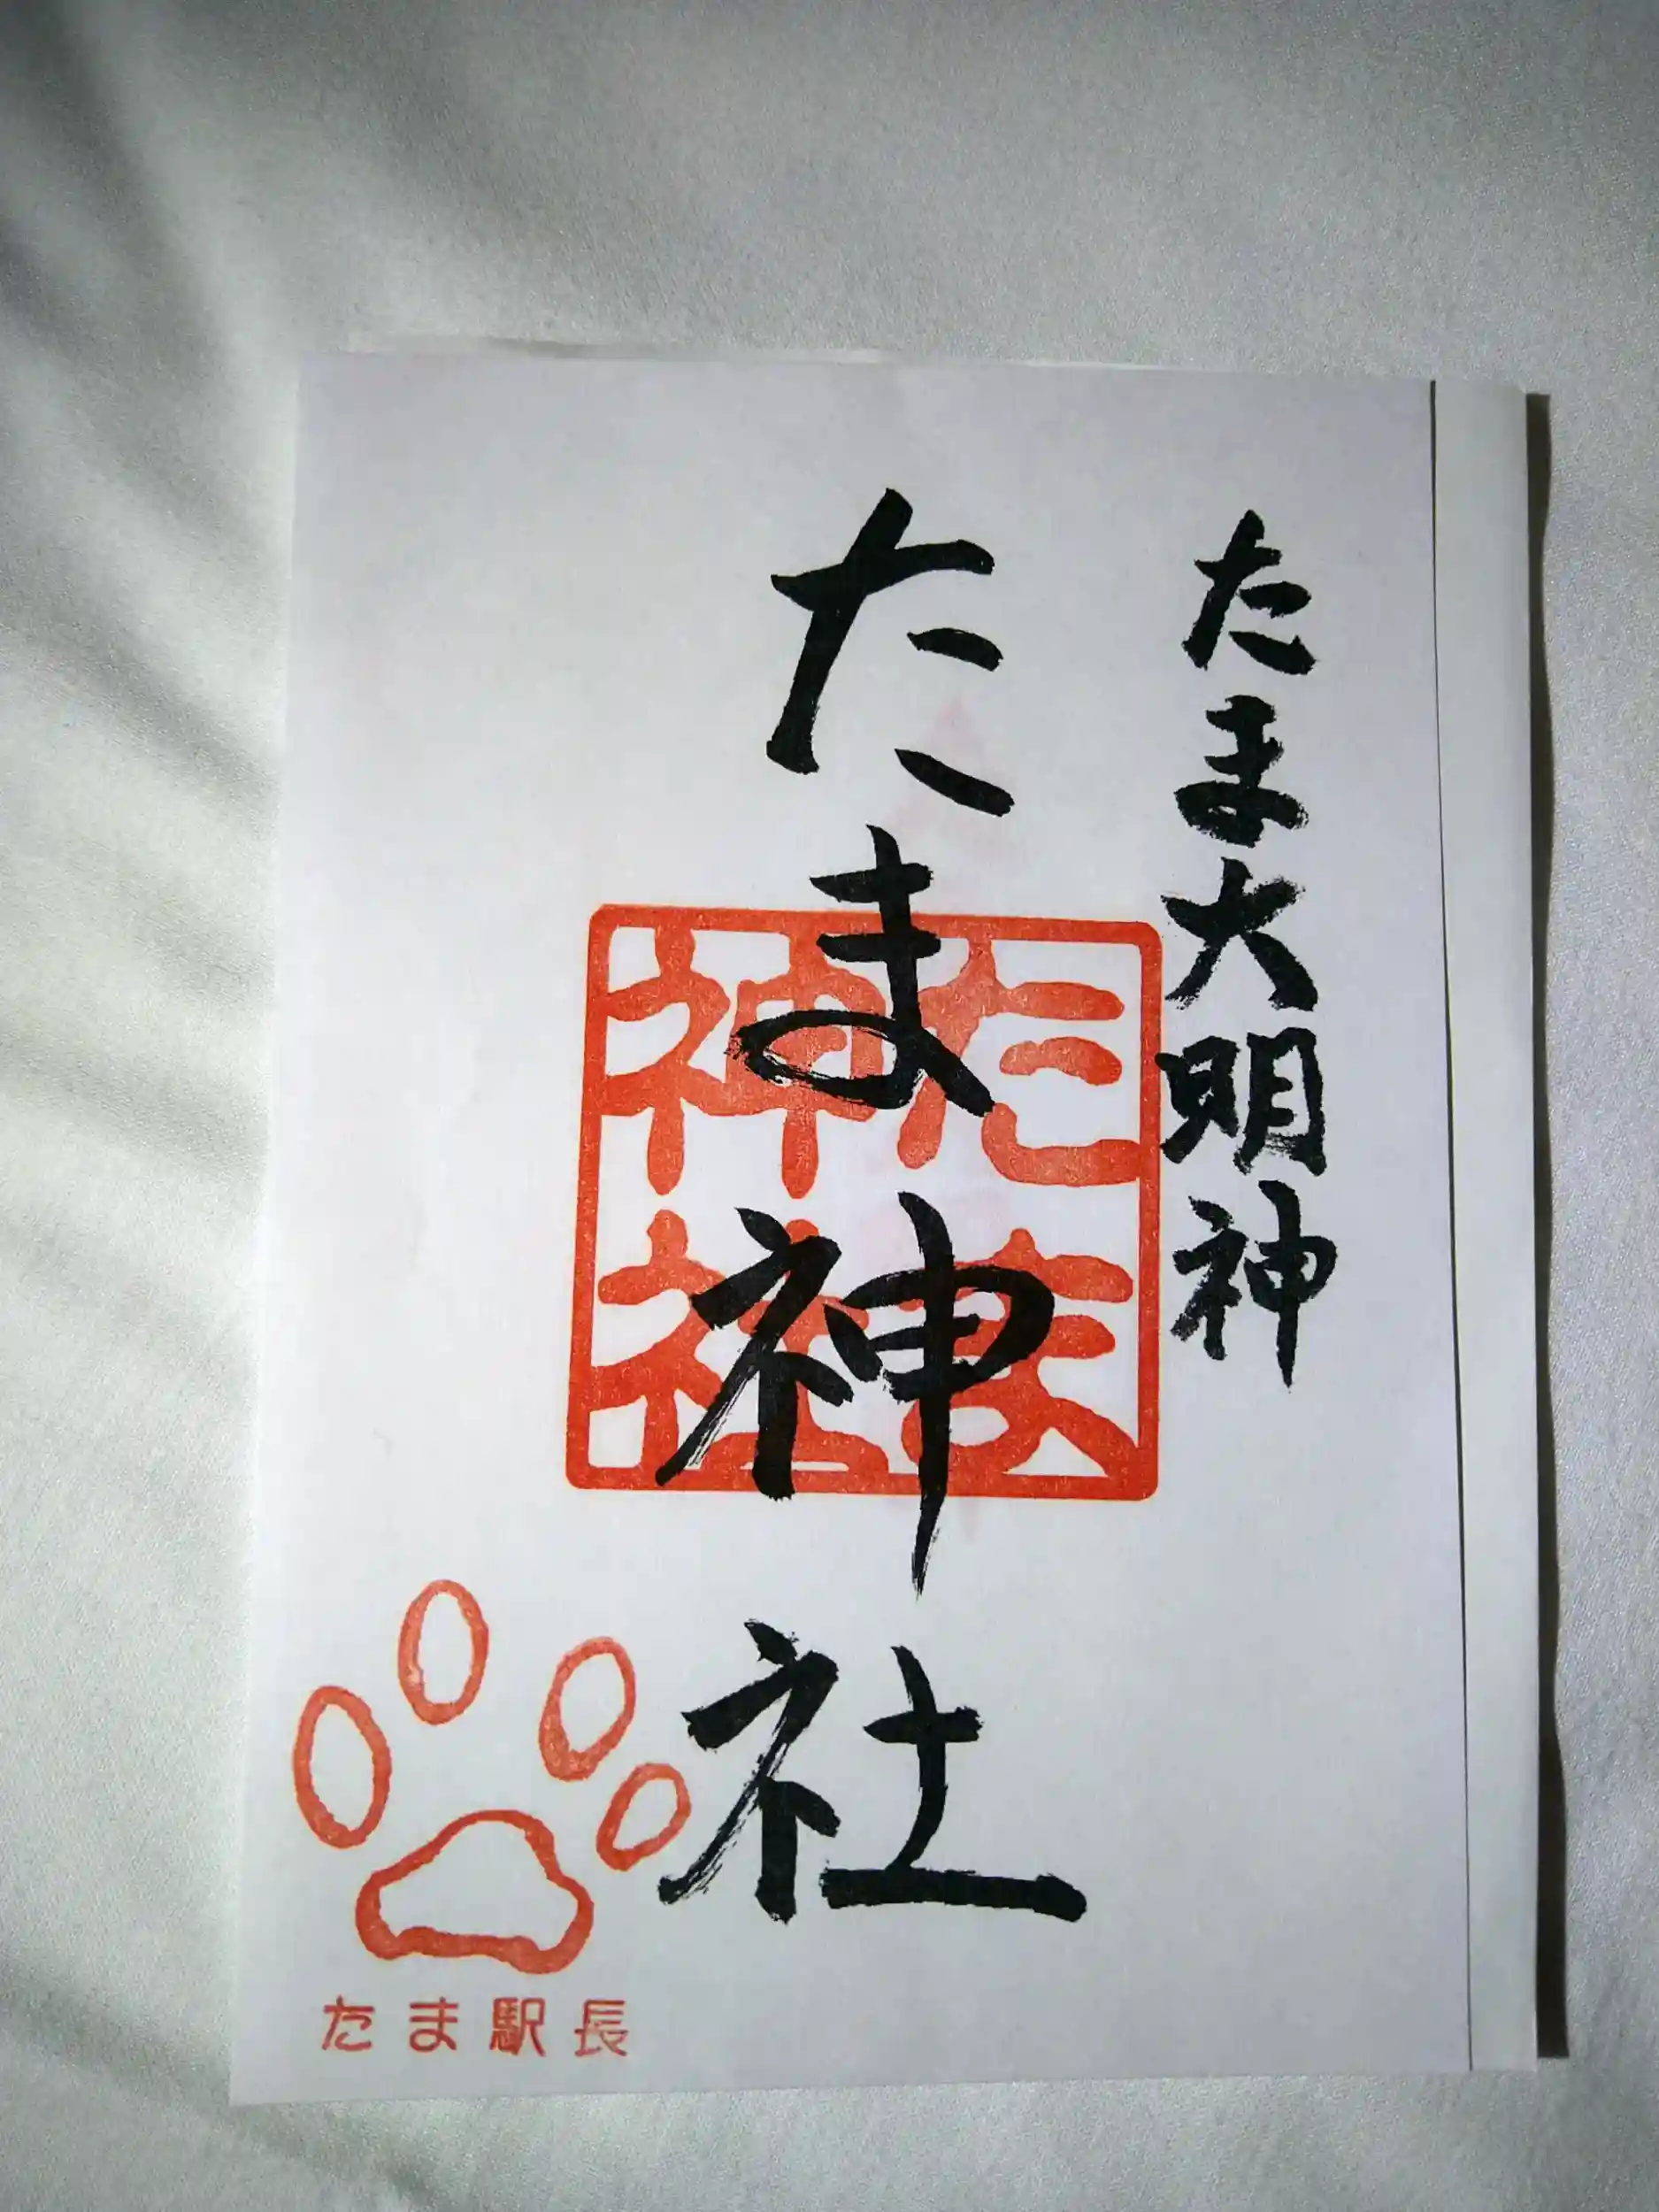 たま大明神
たま神社
たま神社
たま駅長